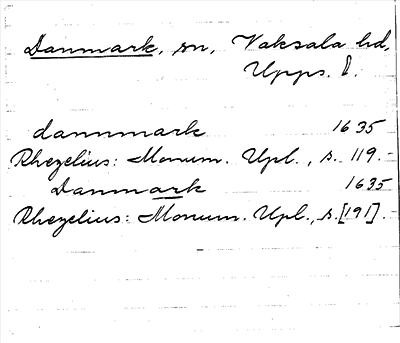 Danmark, sn, Vaksala hd,
Upps. l.
dannmark 1635
Rhezelius: Monum. Upl., s. 119.
Danmark 1635
Rhezelius: Monum. Upl., s. [191].